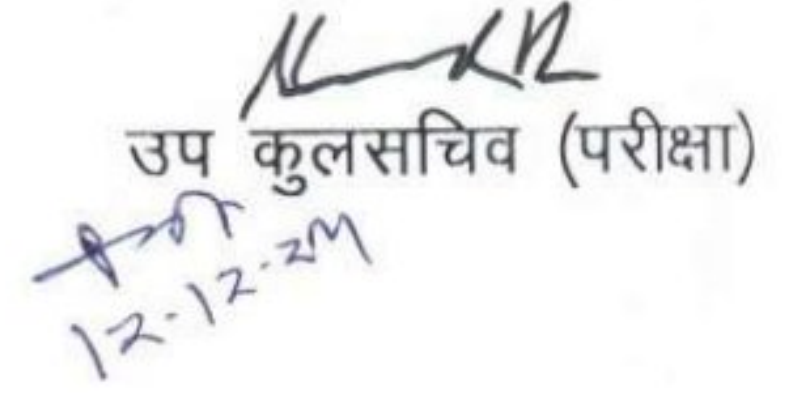 उप कुलसचिव (परीक्षा)
12-12-24